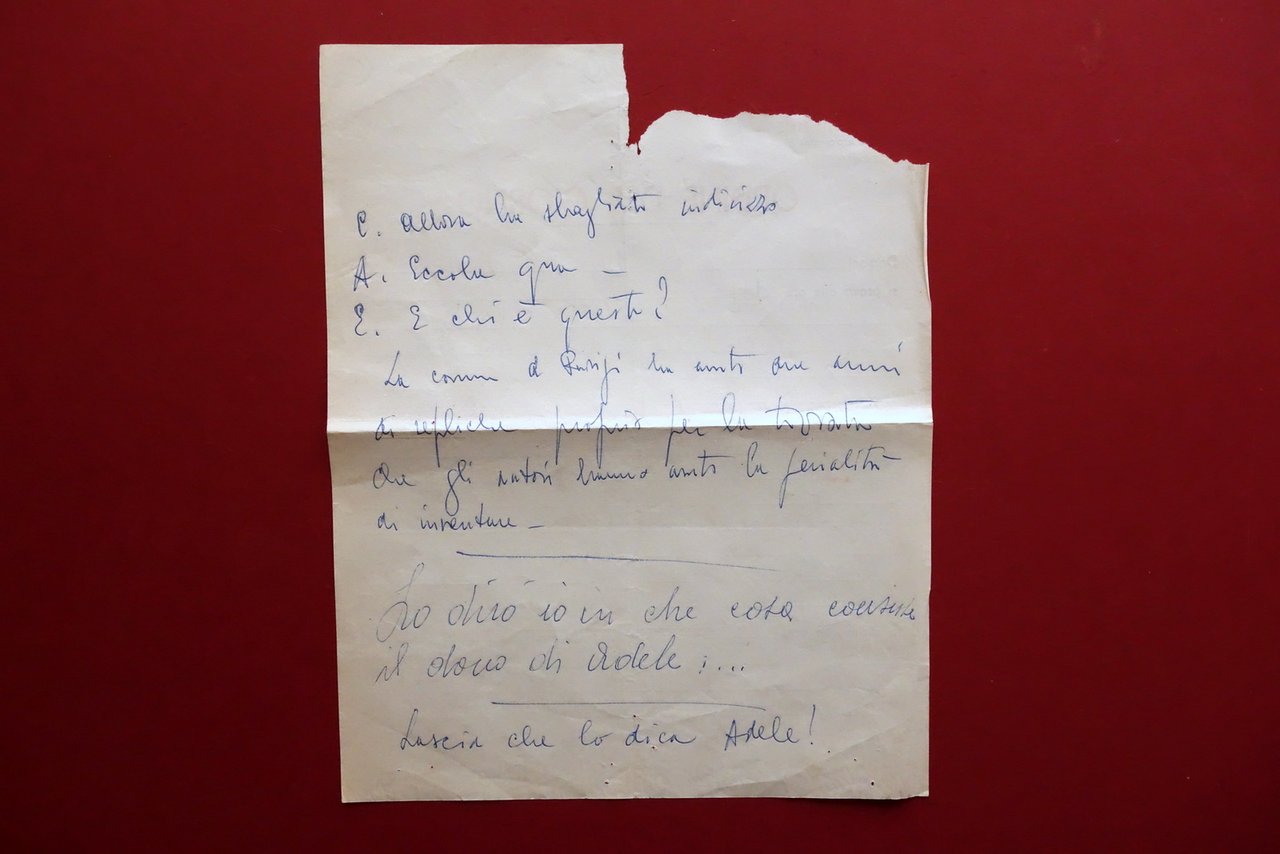 C. allora ha sbagliato indirizzo
A. Eccola qua —
E. E chi è questo?
La comm di Parigi ha avuto due anni
di repliche proprio per la trovata
che gli autori hanno avuto la genialità
di inventare —
Lo dirò io in che cosa consiste
il dono di Adele :...
Lascia che lo dica Adele!